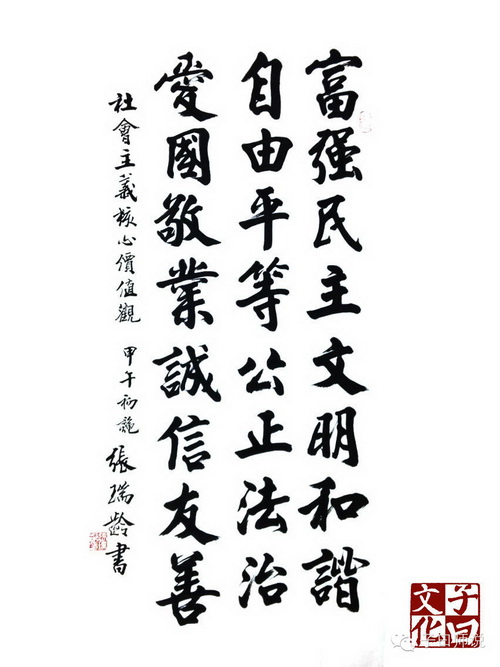 富强民主文明和諧
自由平等公正法治
愛國敬業誠信友善
社會主義核心價值觀 甲午初龍 張瑞龄書
子曰文化